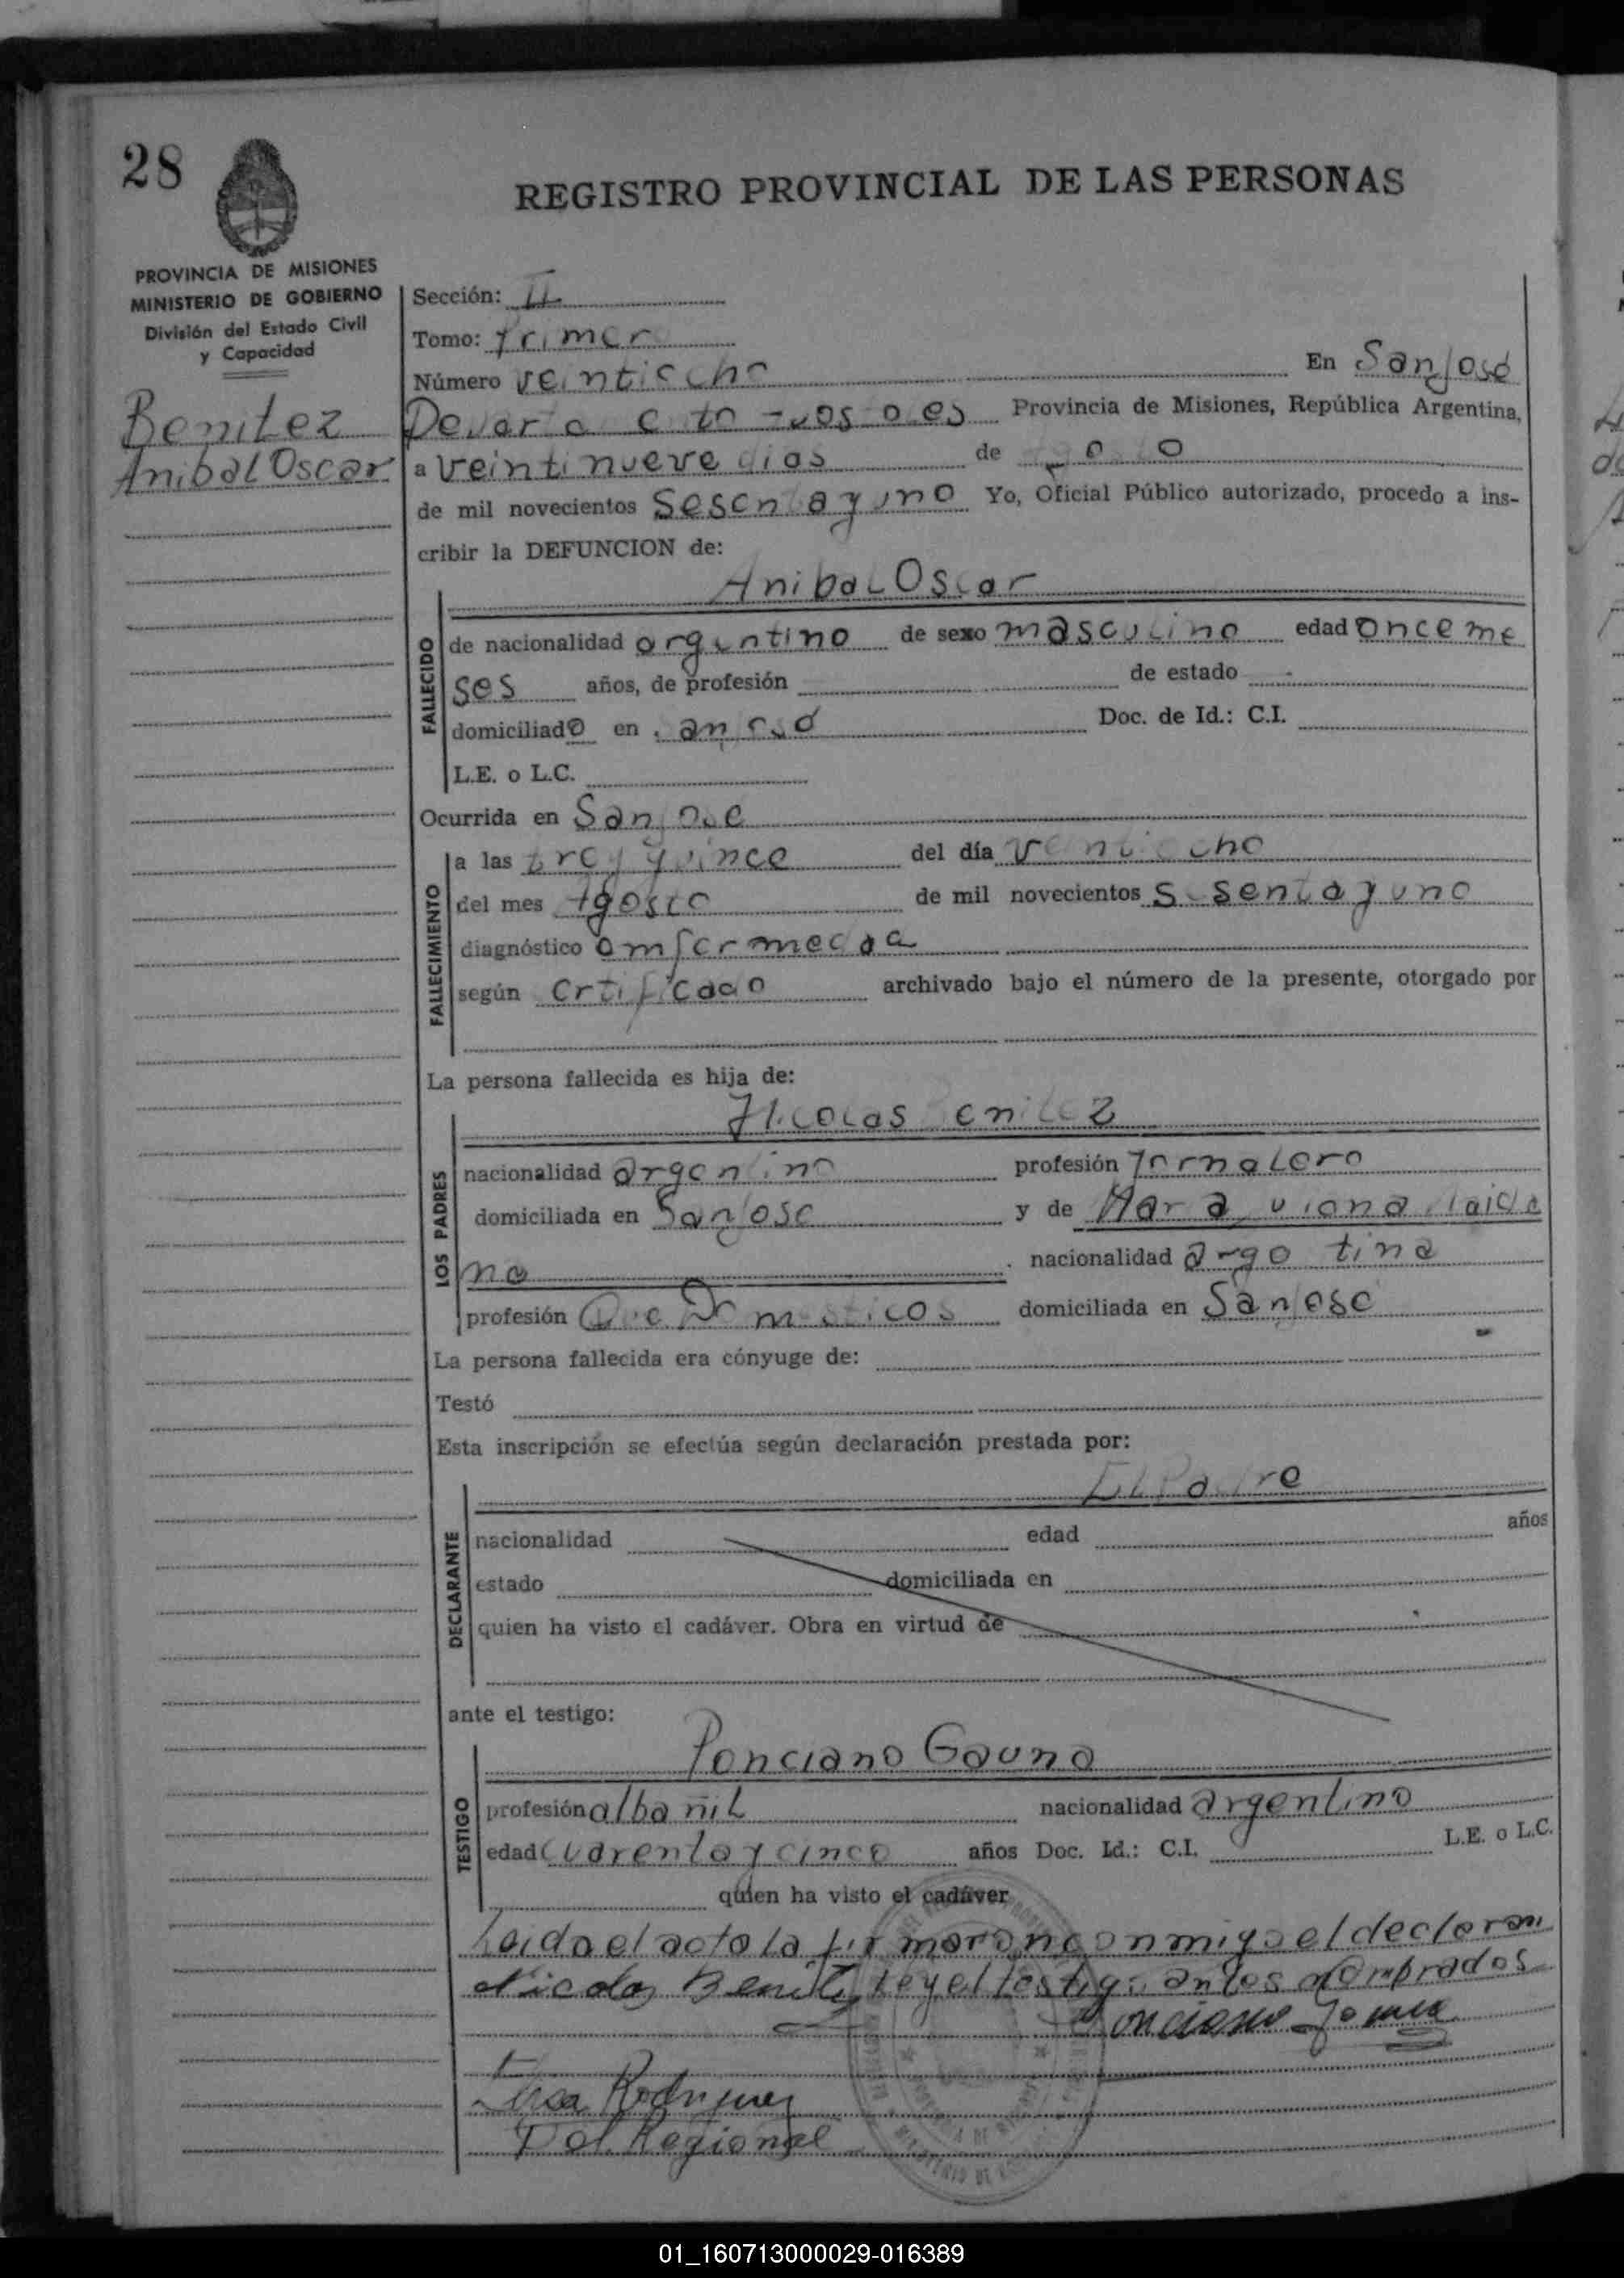 28
REGISTRO PROVINCIAL DE LAS PERSONAS
PROVINCIA DE MISIONES
MINISTERIO DE GOBIERNO
División del Estado Civil
y Capacidad
Benitez
Anibal Oscar
Sección: II
Tomo: primero
Número veintiocho
En San José
Provincia de Misiones, República Argentina,
a veintinueve dias de Agosto
de mil novecientos Sesenta y uno Yo, Oficial Público autorizado, procedo a ins-
cribir la DEFUNCION de:
Anibal Oscar
FALLECIDO
de nacionalidad argentino de sexo masculino edad once me
ses años, de profesión de estado
domiciliado en San José Doc. de Id.: C.I.
L.E. o L.C.
Ocurrida en San Jose
FALLECIMIENTO
a las tres y quince del día veintiocho
del mes Agosto de mil novecientos sesenta y uno
diagnóstico
según certificado archivado bajo el número de la presente, otorgado por
La persona fallecida es hija de:
Nicolas Benitez
LOS PADRES
nacionalidad argentino profesión Jornalero
domiciliada en San Jose y de Maria
na nacionalidad argentina
profesión Que Domesticos domiciliada en San Jose
La persona fallecida era cónyuge de:
Testó
Esta inscripción se efectúa según declaración prestada por:
El Padre
DECLARANTE
nacionalidad edad años
estado domiciliada en
quien ha visto el cadáver. Obra en virtud de
ante el testigo:
Ponciano Gauna
TESTIGO
profesión albañil nacionalidad argentino
edad cuarenta y cinco años Doc. Id.: C.I. L.E. o L.C.
quien ha visto el cadáver
Leida el acta la firmaron conmigo el declaran
Nicolas Benitez te y el testigo antes nombrados
Ponciano Gauna
Rodriguez
Del. Regional
01_160713000029-016389